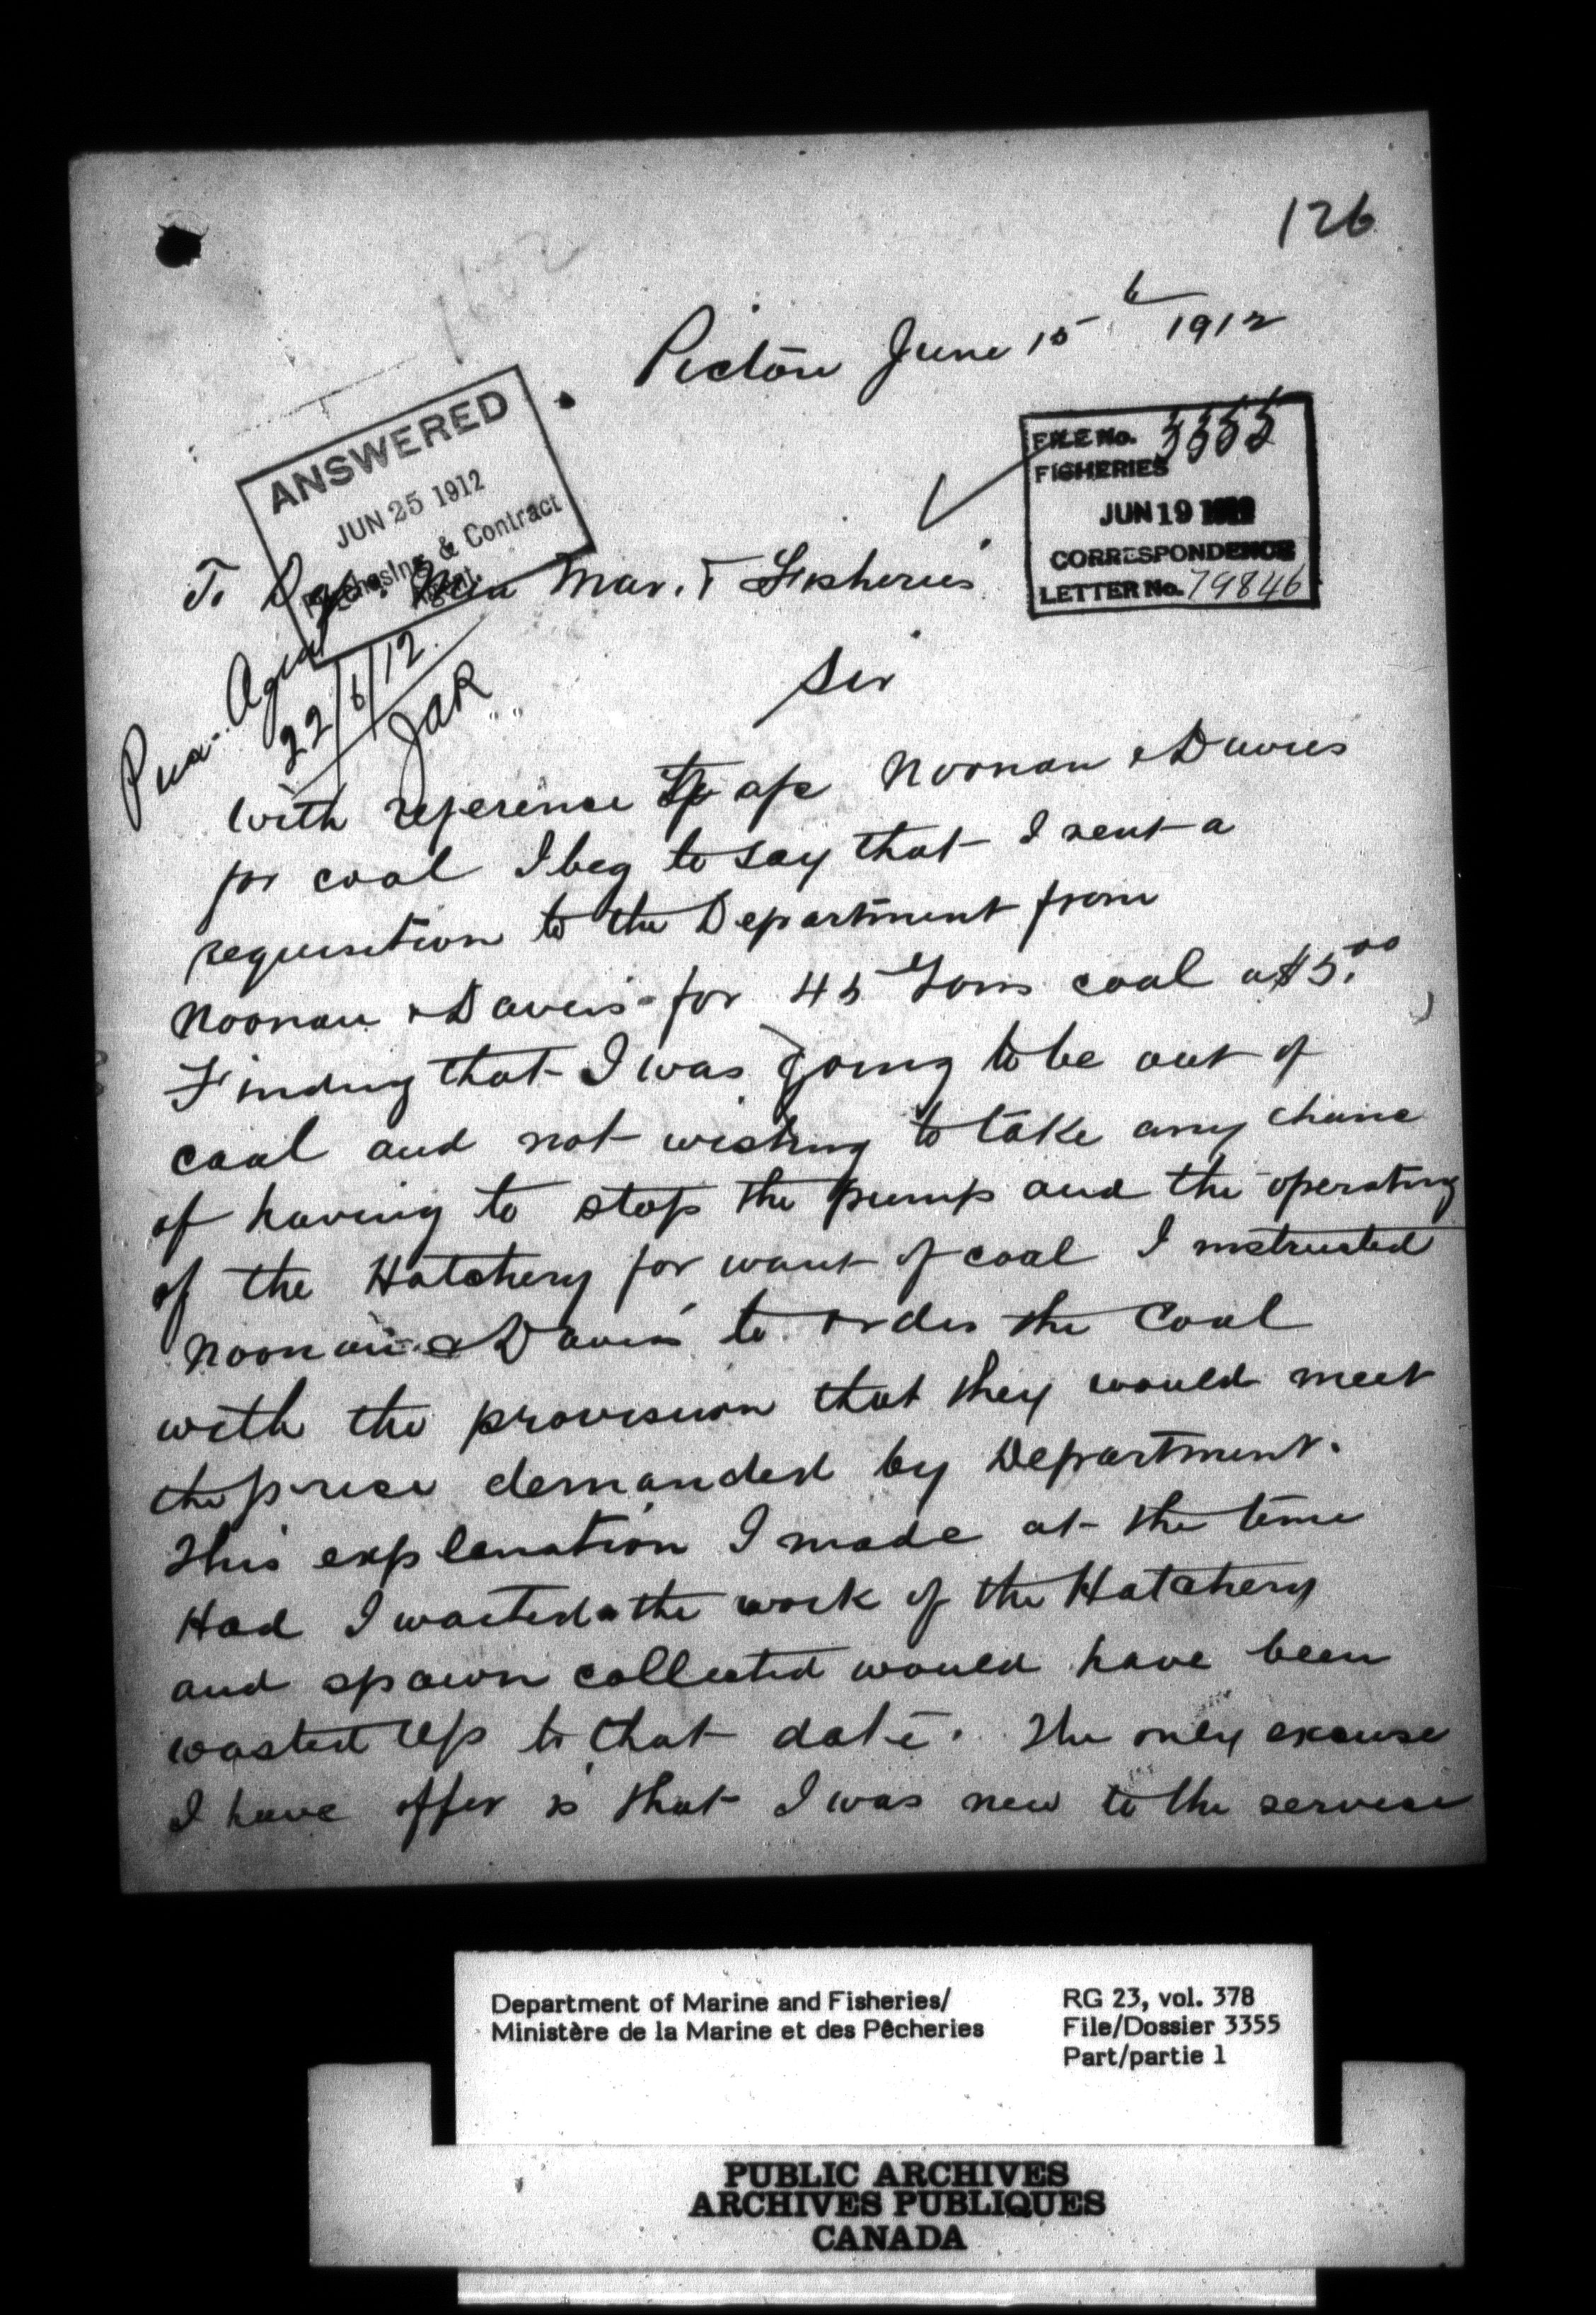 126
Picton June 15th 1912
ANSWERED
JUN 25 1912
Purchasing & Contract
Agent
FILE No. 3355
FISHERIES
JUN 19 1912
CORRESPONDENCE
LETTER No. 79846
To Dep. Min Mar. & Fisheries
Pur. Agent
22/6/12
JAR
Sir
With reference to a/c Noonan & Davies
for coal I beg to say that I sent a
requisition to the Department from
Noonan & Davies for 45 Tons coal a $5.00
Finding that I was going to be out of
coal and not wishing to take any chance
of having to stop the pump and the operating
of the Hatchery for want of coal I instructed
Noonan & Davis to order the Coal
with the provision that they would meet
the price demanded by Department.
This explanation I made at the time
Had I waited the work of the Hatchery
and spawn collected would have been
wasted up to that date. The only excuse
I have offer is that I was new to the service
Department of Marine and Fisheries/
Ministère de la Marine et des Pêcheries
RG 23, vol. 378
File/Dossier 3355
Part/partie 1
PUBLIC ARCHIVES
ARCHIVES PUBLIQUES
CANADA